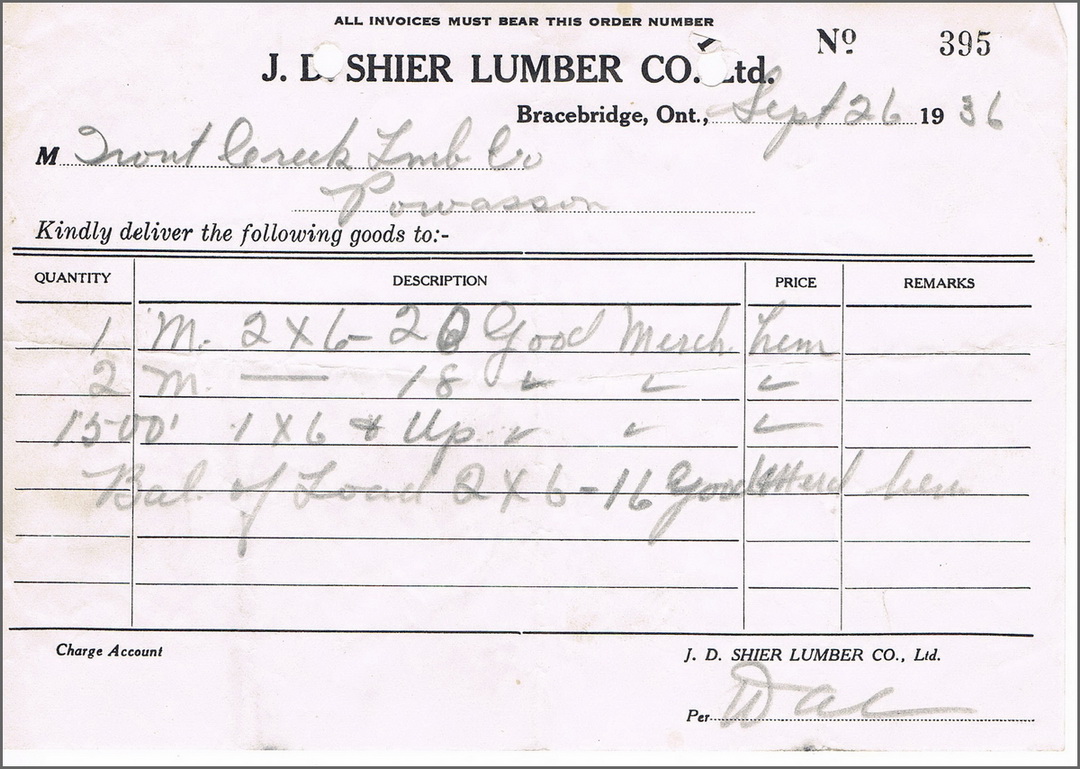 ALL INVOICES MUST BEAR THIS ORDER NUMBER
Nº 395
J. D. SHIER LUMBER CO. Ltd.
Bracebridge, Ont., Sept 26 1936
M Trout Creek Lmb Co
Powasson
Kindly deliver the following goods to:-
QUANTITY DESCRIPTION PRICE REMARKS
1 M. 2 X 6 - 20 Good Merch. hem
2 M. — 18 " " "
1500' 1 X 6 & Up " " "
Bal. of Load 2 X 6 - 16 Good Merch hem
Charge Account
J. D. SHIER LUMBER CO., Ltd.
Per